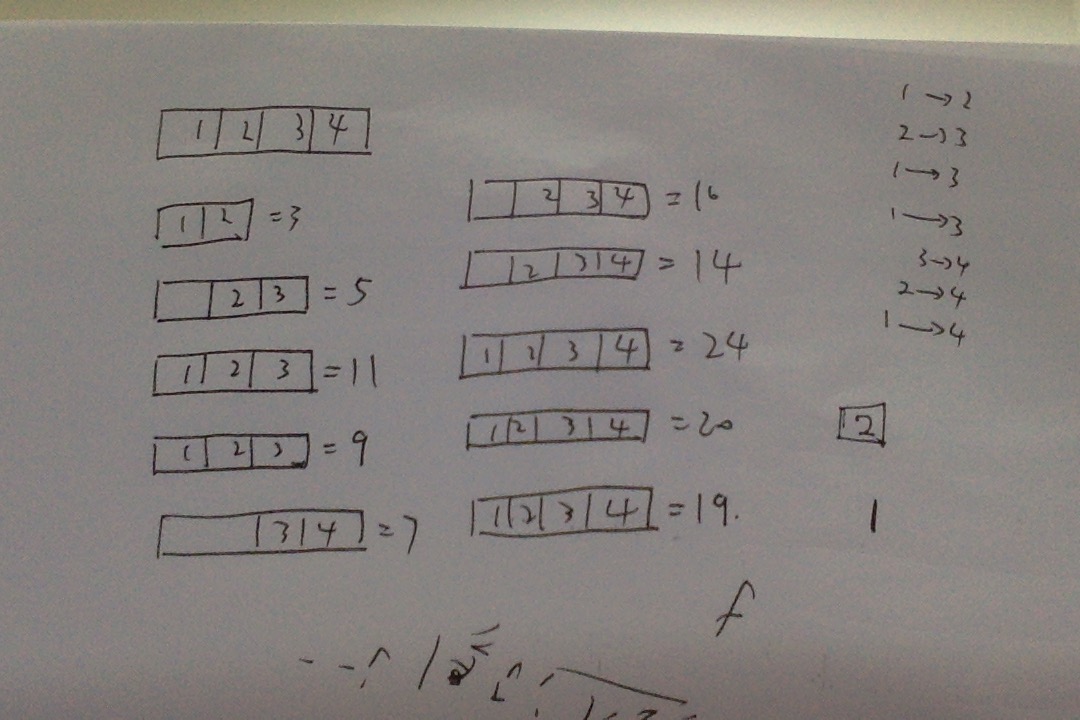 1 2 3 4
1 2 =3
2 3 =5
1 2 3 =11
1 2 3 =9
3 4 =7
2 3 4 =16
2 3 4 =14
1 2 3 4 =24
1 2 3 4 =20
1 2 3 4 =19.
1→2
2→3
1→3
1→3
3→4
2→4
1→4
2
1
f